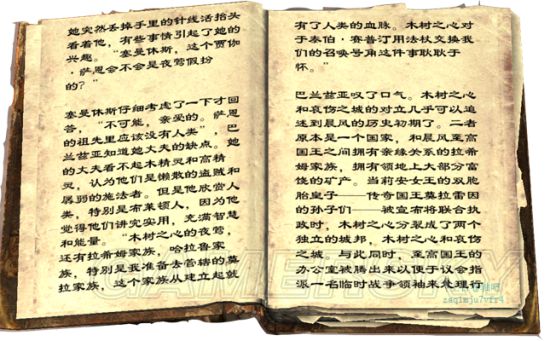 她突然丢掉手里的针线活抬头
看着他，有些事情引起了她的
兴趣。“塞曼休斯，这个贾伽
·萨恩会不会是夜莺假扮
的？”
塞曼休斯仔细考虑了一下才回
答，“不可能，亲爱的。萨恩
的祖先里应该没有人类”，巴
兰兹亚知道她丈夫的缺点。她
的丈夫看不起木精灵和高精
灵，认为他们是懒散的盗贼和
孱弱的施法者。但是他欣赏人
类，特别是布莱顿人，因为他
觉得他们讲究实用，充满智慧
和能量。“木树之心的夜莺，
还有拉希姆家族，哈拉鲁家
族，特别是我准备去管辖的莫
拉家族，这个家族从建立起就
有了人类的血脉。木树之心对
于泰伯·赛普汀用法杖交换我
们的召唤号角这件事耿耿于
怀。”
巴兰兹亚叹了口气。木树之心
和哀伤之城的对立几乎可以追
述到晨风的历史初期了。二者
原本是一个国家，和晨风至高
国王之间拥有亲缘关系的拉希
姆家族，拥有领地上大部分富
饶的矿产。当莉安女王的双胞
胎皇子——传奇国王莫拉雷因
的孙子们——被宣布将联合执
政时，木树之心分裂成了两个
独立的城邦，木树之心和哀伤
之城，与此同时，至高国王的
办公室被腾出来以便于议会指
派一名临时战争领袖来处理行
GAMERSKY
zaqimju7vfr4